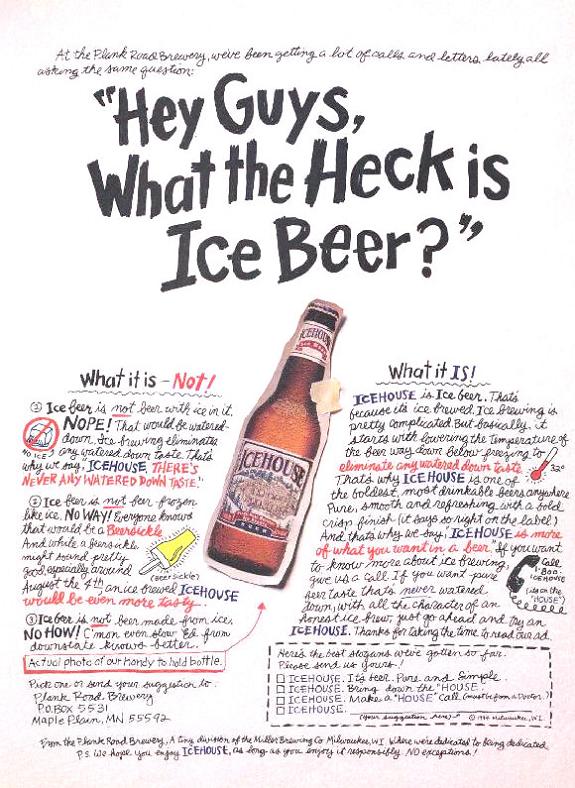 At the Plank Road Brewery, we've been getting a lot of calls and letters lately all
asking the same question:
"Hey Guys,
What the Heck is
Ice Beer?"
What it is - Not!
① Ice beer is not beer with ice in it.
NOPE! That would be watered-
down. Ice brewing eliminates
NO ICE! any watered down taste. That's
why we say, ICEHOUSE, THERE'S
NEVER ANY WATERED DOWN TASTE."
② Ice beer is not beer frozen
like ice. NO WAY! Everyone knows
that would be a Beersickle
And while a beersickle
might sound pretty
good, especially around
(Beersickle)
August the 4th, an ice brewed ICEHOUSE
would be even more tasty.
③ Ice beer is not beer made from ice.
NO HOW! C'mon even slow Ed from
downstate knows better.
Actual photo of our handy to hold bottle.
Pick one or send your suggestion to:
Plank Road Brewery
P.O. BOX 5531
Maple Plain, MN 55592
ICEHOUSE
ICEHOUSE
BEER
What it IS!
ICEHOUSE is Ice beer. That's
because its ice brewed. Ice brewing is
pretty complicated. But basically, it
starts with lowering the temperature of
the beer way down below freezing to
eliminate any watered down taste.
32°
That's why ICEHOUSE is one of
the boldest, most drinkable beers anywhere
Pure, smooth and refreshing with a bold
crisp finish (it says so right on the label)
And that's why we say, ICEHOUSE is more
of what you want in a beer." If you want
to know more about ice brewing,
give us a call. If you want pure
beer taste that's never watered
down, with all the character of an
honest ice brew, just go ahead and try an
ICEHOUSE. Thanks for taking the time to read our ad.
Call
1-800-
ICEHOUSE
"HOUSE")
Here's the best slogans we've gotten so far.
Please send us yours!
ICEHOUSE. It's beer. Pure and Simple.
ICEHOUSE. Bring down the "HOUSE."
ICEHOUSE. Make a "HOUSE" Call (must be from a Doctor.)
ICEHOUSE.
(your suggestion here)
© 1994 Milwaukee, WI
From the Plank Road Brewery, A tiny division of the Miller Brewing Co. Milwaukee, WI. Where we're dedicated to being dedicated.
P.S. We hope you enjoy ICEHOUSE, as long as you enjoy it responsibly. NO exceptions!